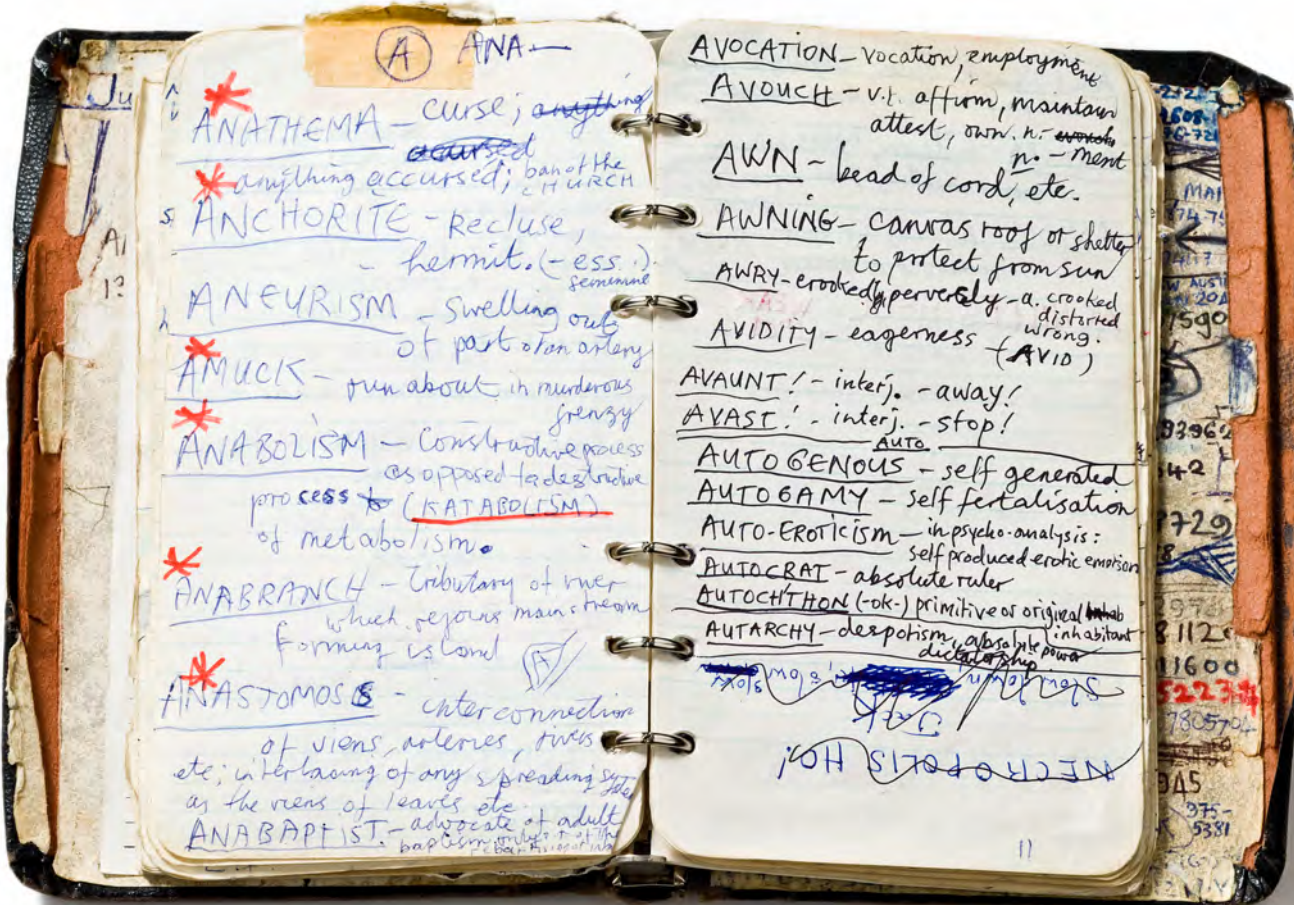 A ANA—
ANATHEMA – curse; anything
accursed
anything accursed; ban of the
CHURCH
ANCHORITE – Recluse,
– hermit. (–ess.)
feminine
ANEURISM – swelling out
of part of an artery
AMUCK – run about in murderous
frenzy
ANABOLISM – Constructive process
as opposed to destructive
process to (KATABOLISM)
of metabolism.
ANABRANCH – tributary of river
which rejoins main stream
forming island
A
ANASTOMOSIS – interconnection
of viens, arteries, rivers
etc; interlacing of any spreading
as the viens of leaves etc.
ANABAPTIST. – advocate of adult
baptism only
AVOCATION – vocation, employment
AVOUCH – v.t. affirm, maintain
attest, own. n. –
n. – ment
AWN – bead of cord, etc.
AWNING – canvas roof or shelter
to protect from sun
AWRY – crookedly, perversely – a. crooked
distorted
wrong.
AVIDITY – eagerness – (AVID)
AVAUNT! – interj. – away!
AVAST! – interj. – stop!
AUTO
AUTOGENOUS – self generated
AUTOGAMY – self fertalisation
AUTO-EROTICISM – in psycho-analysis:
self produced erotic emotion
AUTOCRAT – absolute ruler
AUTOCHTHON (-ok-) primitive or original inhab
inhabitant
AUTARCHY – despotism, absolute power
dictatorship
NECROPOLIS HO!
11
Ju
A1
1?
MAI
7590
9396
342
7729
8112
11600
5223
780570
945
375-
5381